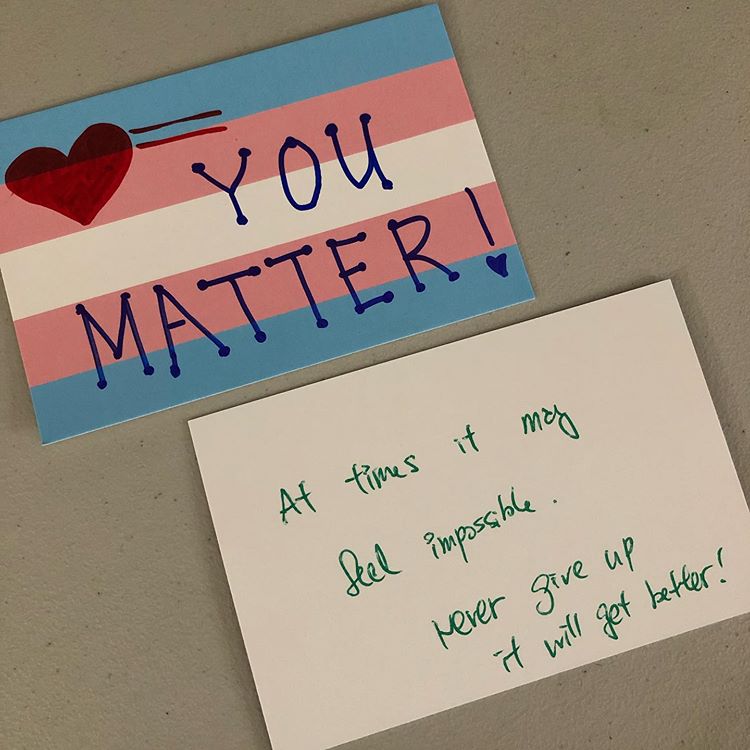 YOU
MATTER!
At times it may
feel impossible.
Never give up
it will get better!